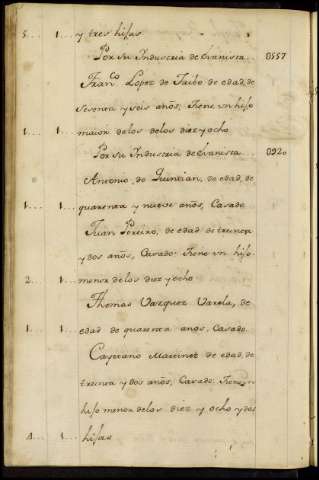 5... 1... y tres hijas
Por su Industria de Evanista 0557
Franco Lopez de Taibo de edad, de
Sesenta y seis años, tiene un hijo
1... 1... maior de los de los diez y ocho
Por su Industria de Evanista 0920
Antonio, de Quintian, de edad, de
1... 1... quarenta y nueve años, Casado
Juan Pereiro, de edad de treinta
y dos años, Casado: tiene un hijo
2... 1... menor de los diez y ocho
Thomas Vazquez Varela, de
1... 1... edad de quarenta años, Casado
Cayetano Martinez de edad, de
treinta y dos años, Casado: tiene un
hijo menor de los diez y ocho y dos
4... 1... hijas